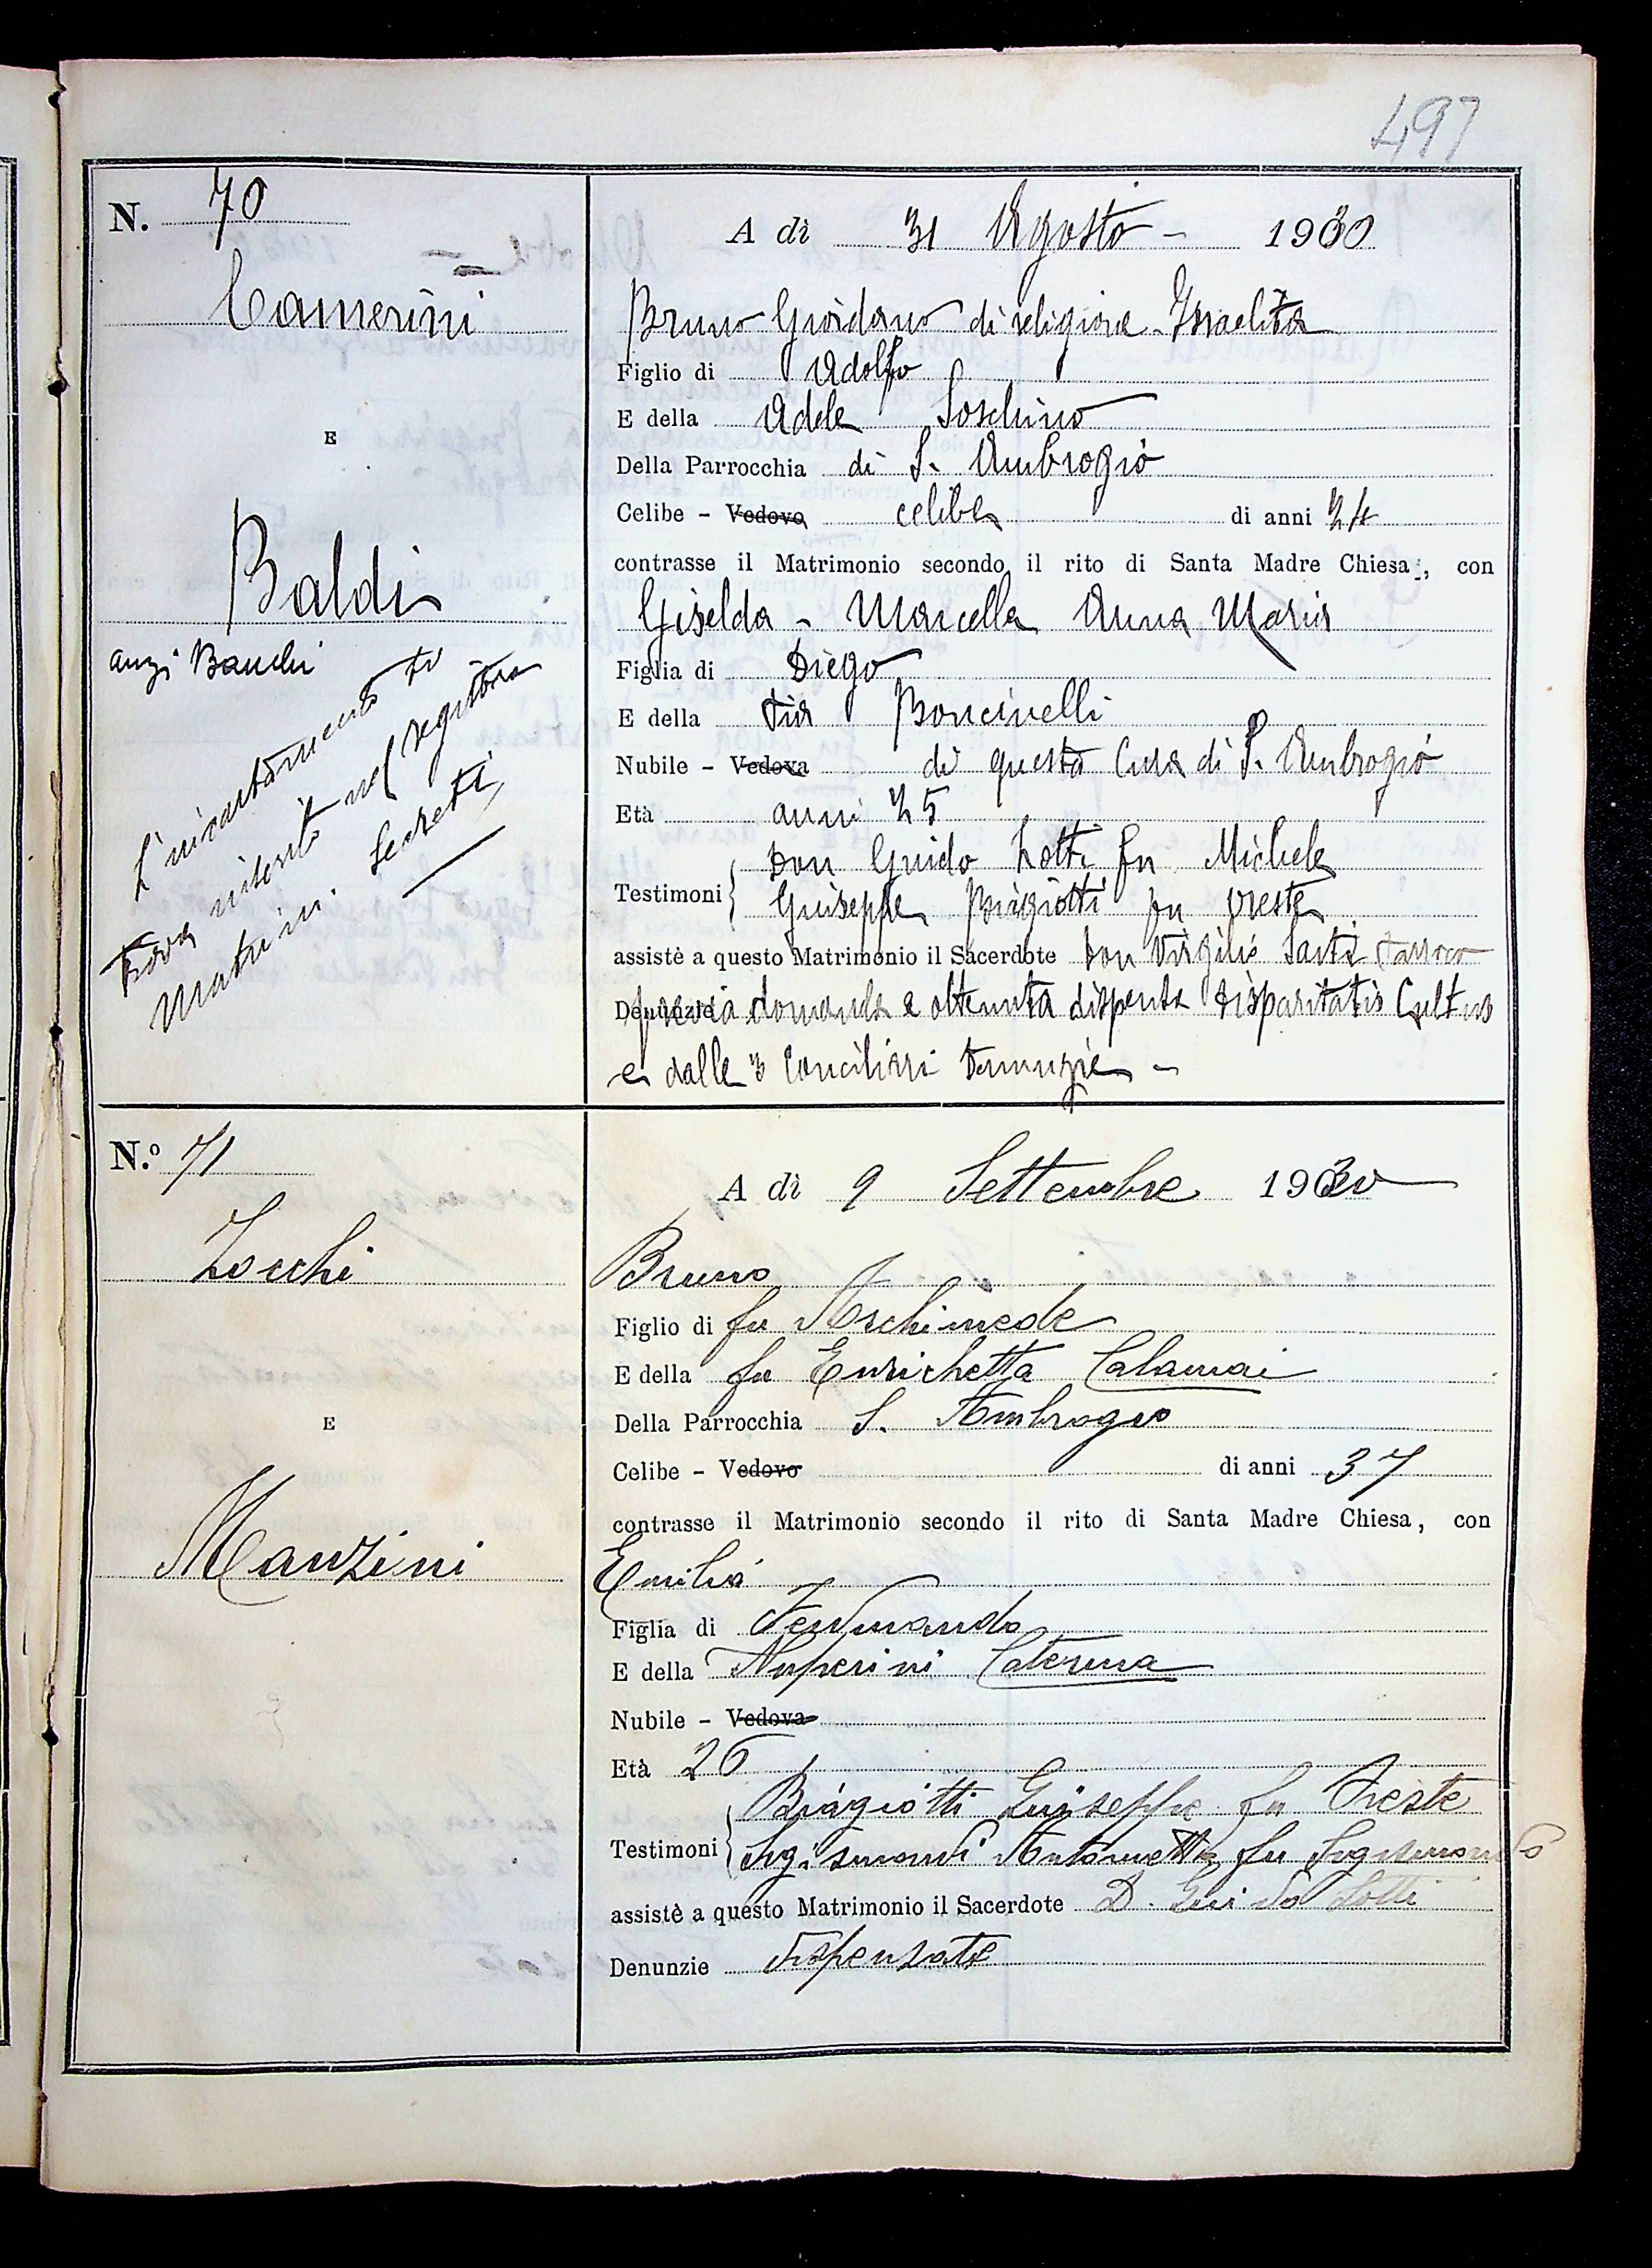 497
N. 70
A dì 31 Agosto - 1930
Camerini
Bruno Giordano di religione Israelita
Figlio di Adolfo
E della Adele Soschino
E
Della Parrocchia di S. Ambrogio
Celibe - Vedovo celibe di anni 24
contrasse il Matrimonio secondo il rito di Santa Madre Chiesa, con
Baldi
Giselda - Marcella Anna Maria
anzi Banchi
Figlia di Diego
E della Pia Boncinelli
Nubile - Vedova di questa Cura di S. Ambrogio
Età anni 25
L'incartamento si
trova inserito nel registro
Matrimoni Secreti
Don Guido Lotti fu Michele
Testimoni
Giuseppe Biagiotti fu Oreste
assistè a questo Matrimonio il Sacerdote Don Virgilio Santi Parroco
Denunzie previa domanda e ottenuta dispensa disparitatis Cultus
e dalle 3 conciliari denunzie -
N.º 71
A dì 9 Settembre 1930
Zocchi
Bruno
Figlio di fu Archimede
E della fu Enrichetta Calamai
E
Della Parrocchia S. Ambrogio
Celibe - Vedovo di anni 37
contrasse il Matrimonio secondo il rito di Santa Madre Chiesa, con
Manzini
Emilia
Figlia di Ferdinando
E della Nuperini Caterina
Nubile - Vedova
Età 26
Biagiotti Giuseppe fu Oreste
Testimoni
Sigismondi Antonietta fu Sigismondo
assistè a questo Matrimonio il Sacerdote D. Guido Lotti
Denunzie Dispensate